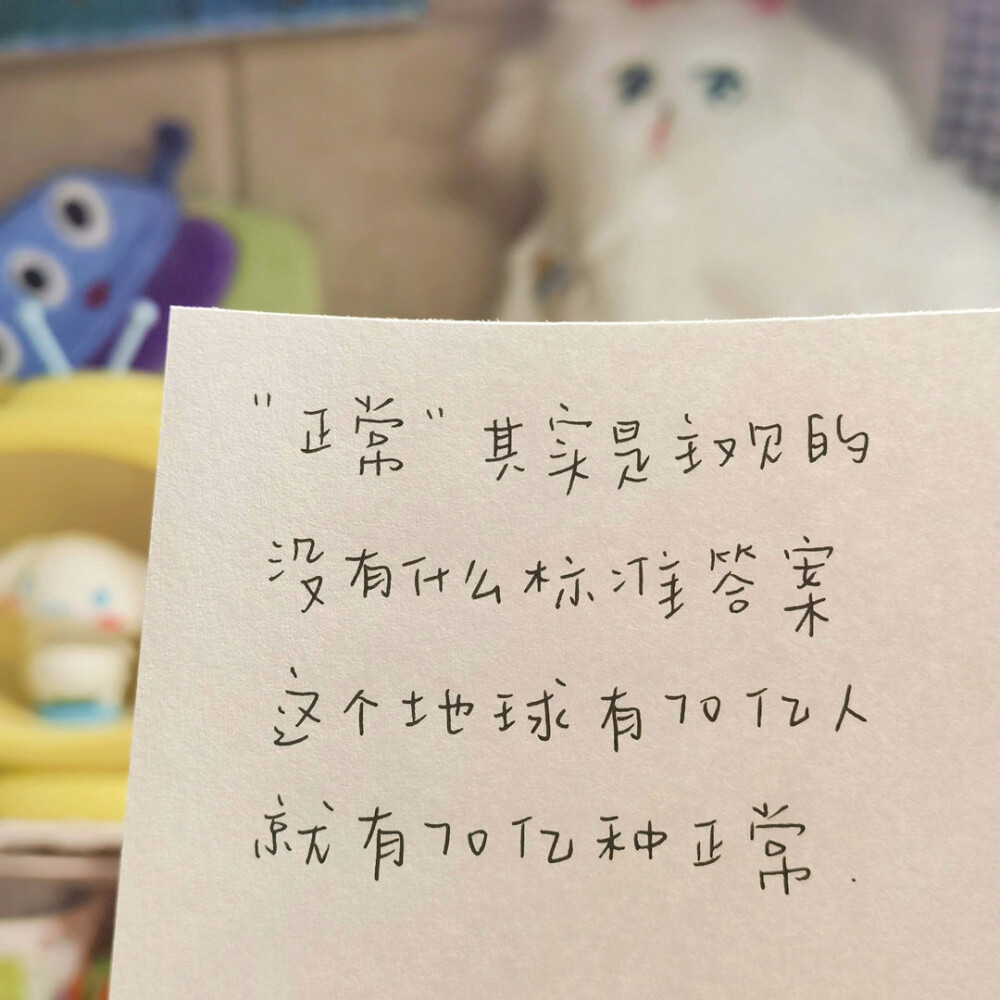 "正常"其实是主观的
没有什么标准答案
这个地球有70亿人
就有70亿种正常.